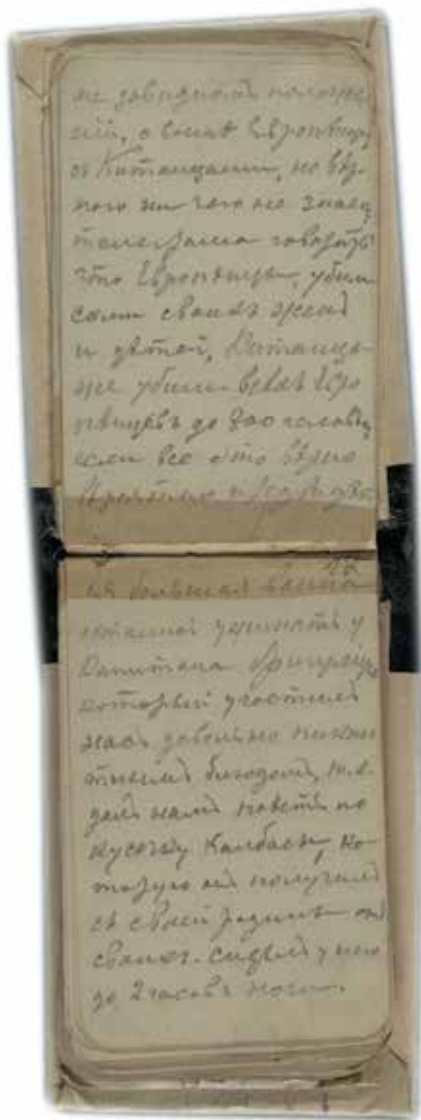 не завидномъ положе
ніи, о воинѣ Европейце
съ Китайцами, но вѣр
ного ни чего не знаемъ
телеграма говоритъ
что Европейцы, убили
сами своихъ женъ
и дѣтей, Китайцы
же убили всѣхъ Евро
пейцевъ до 800 человѣкъ
если все это вѣрно

ся большая война
остались ужинать у
Капитана
который угостилъ
насъ довольно пикан
тнымъ блюдомъ, т.е.
далъ намъ поесть по
кусочку Калбасы, ко
торую онъ получилъ
съ своей родины отъ
своихъ. Сидѣли у него
до 2 часовъ ночи.